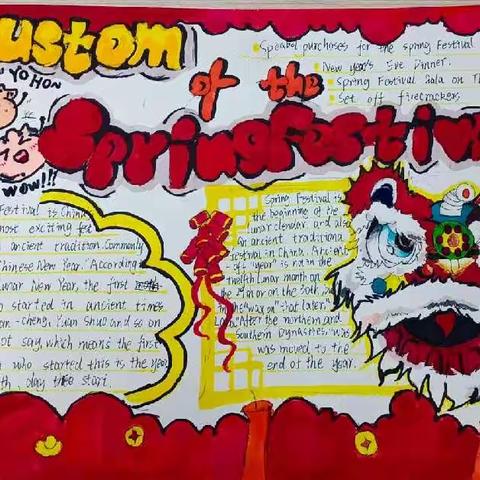 ustom
of the
Spring Festiv
YO HOH
WOW!!!
Speabl purchases for the spring Festival
New year's Eve Dinner.
Spring Festival Gala on T
Set off firecrackers
Festival is China
most exciting fest
ancient tradition. Commonly
Chinese New Year. "According
Lunar New Year, the first
started in ancient times
cheng, Yuan Shuo and so on
not say, which means the first
who started this is the yea
th day the start.
Spring Festival is
the beginning of the
lunar clendar and also
an ancient traditional
festival in China. Ancient
"year" is not in the
twelfth lunar month on
the 29 or on the 30th, but
in the "wax day" that later "
Laba" After the northern and
Southern Dynasties, was
was moved to the
end of the year.